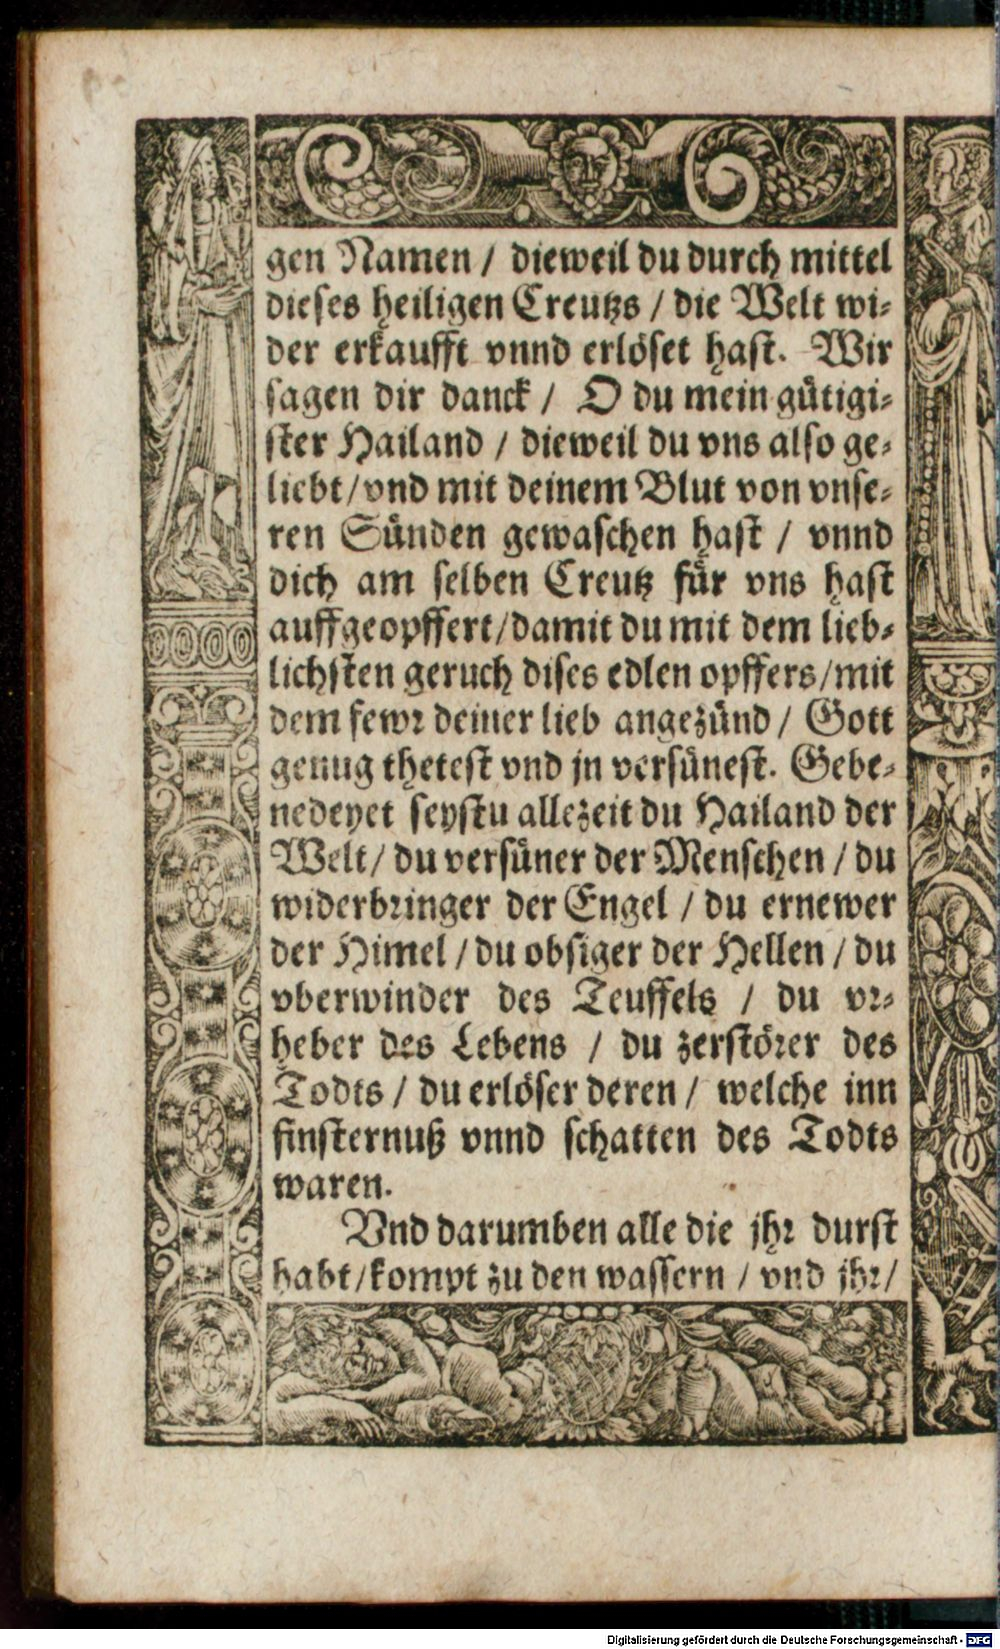 gen Namen / dieweil du durch mittel
dieses heiligen Creutzs / die Welt wi-
der erkaufft vnnd erlöset hast. Wir
sagen dir danck / O du mein gütigi-
ster Hailand / dieweil du vns also ge-
liebt / vnd mit deinem Blut von vnse-
ren Sünden gewaschen hast / vnnd
dich am selben Creutz für vns hast
auffgeopffert / damit du mit dem lieb-
lichsten geruch dises edlen opffers / mit
dem fewr deiner lieb angezünd / Gott
genug thetest vnd jn versünest. Gebe-
nedeyet seystu allezeit du Hailand der
Welt / du versüner der Menschen / du
widerbringer der Engel / du ernewer
der Himel / du obsiger der Hellen / du
vberwinder des Teuffels / du vr-
heber des Lebens / du zerstörer des
Todts / du erlöser deren / welche inn
finsternuß vnnd schatten des Todts
waren.
Vnd darumben alle die jhr durst
habt / kompt zu den wassern / vnd jhr /
Digitalisierung gefördert durch die Deutsche Forschungsgemeinschaft - DFG